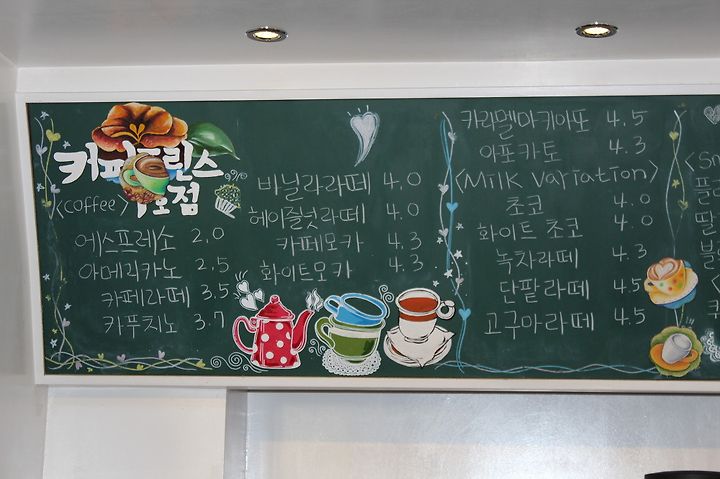 커피프린스
1호점
<Coffee>
에스프레소 2.0
아메리카노 2.5
카페라떼 3.5
카푸치노 3.7
바닐라라떼 4.0
헤이즐넛라떼 4.0
카페모카 4.3
화이트모카 4.3
카라멜마키아또 4.5
아포카토 4.3
<Milk Variation>
초코 4.0
화이트 초코 4.0
녹차라떼 4.3
단팥라떼 4.5
고구마라떼 4.5